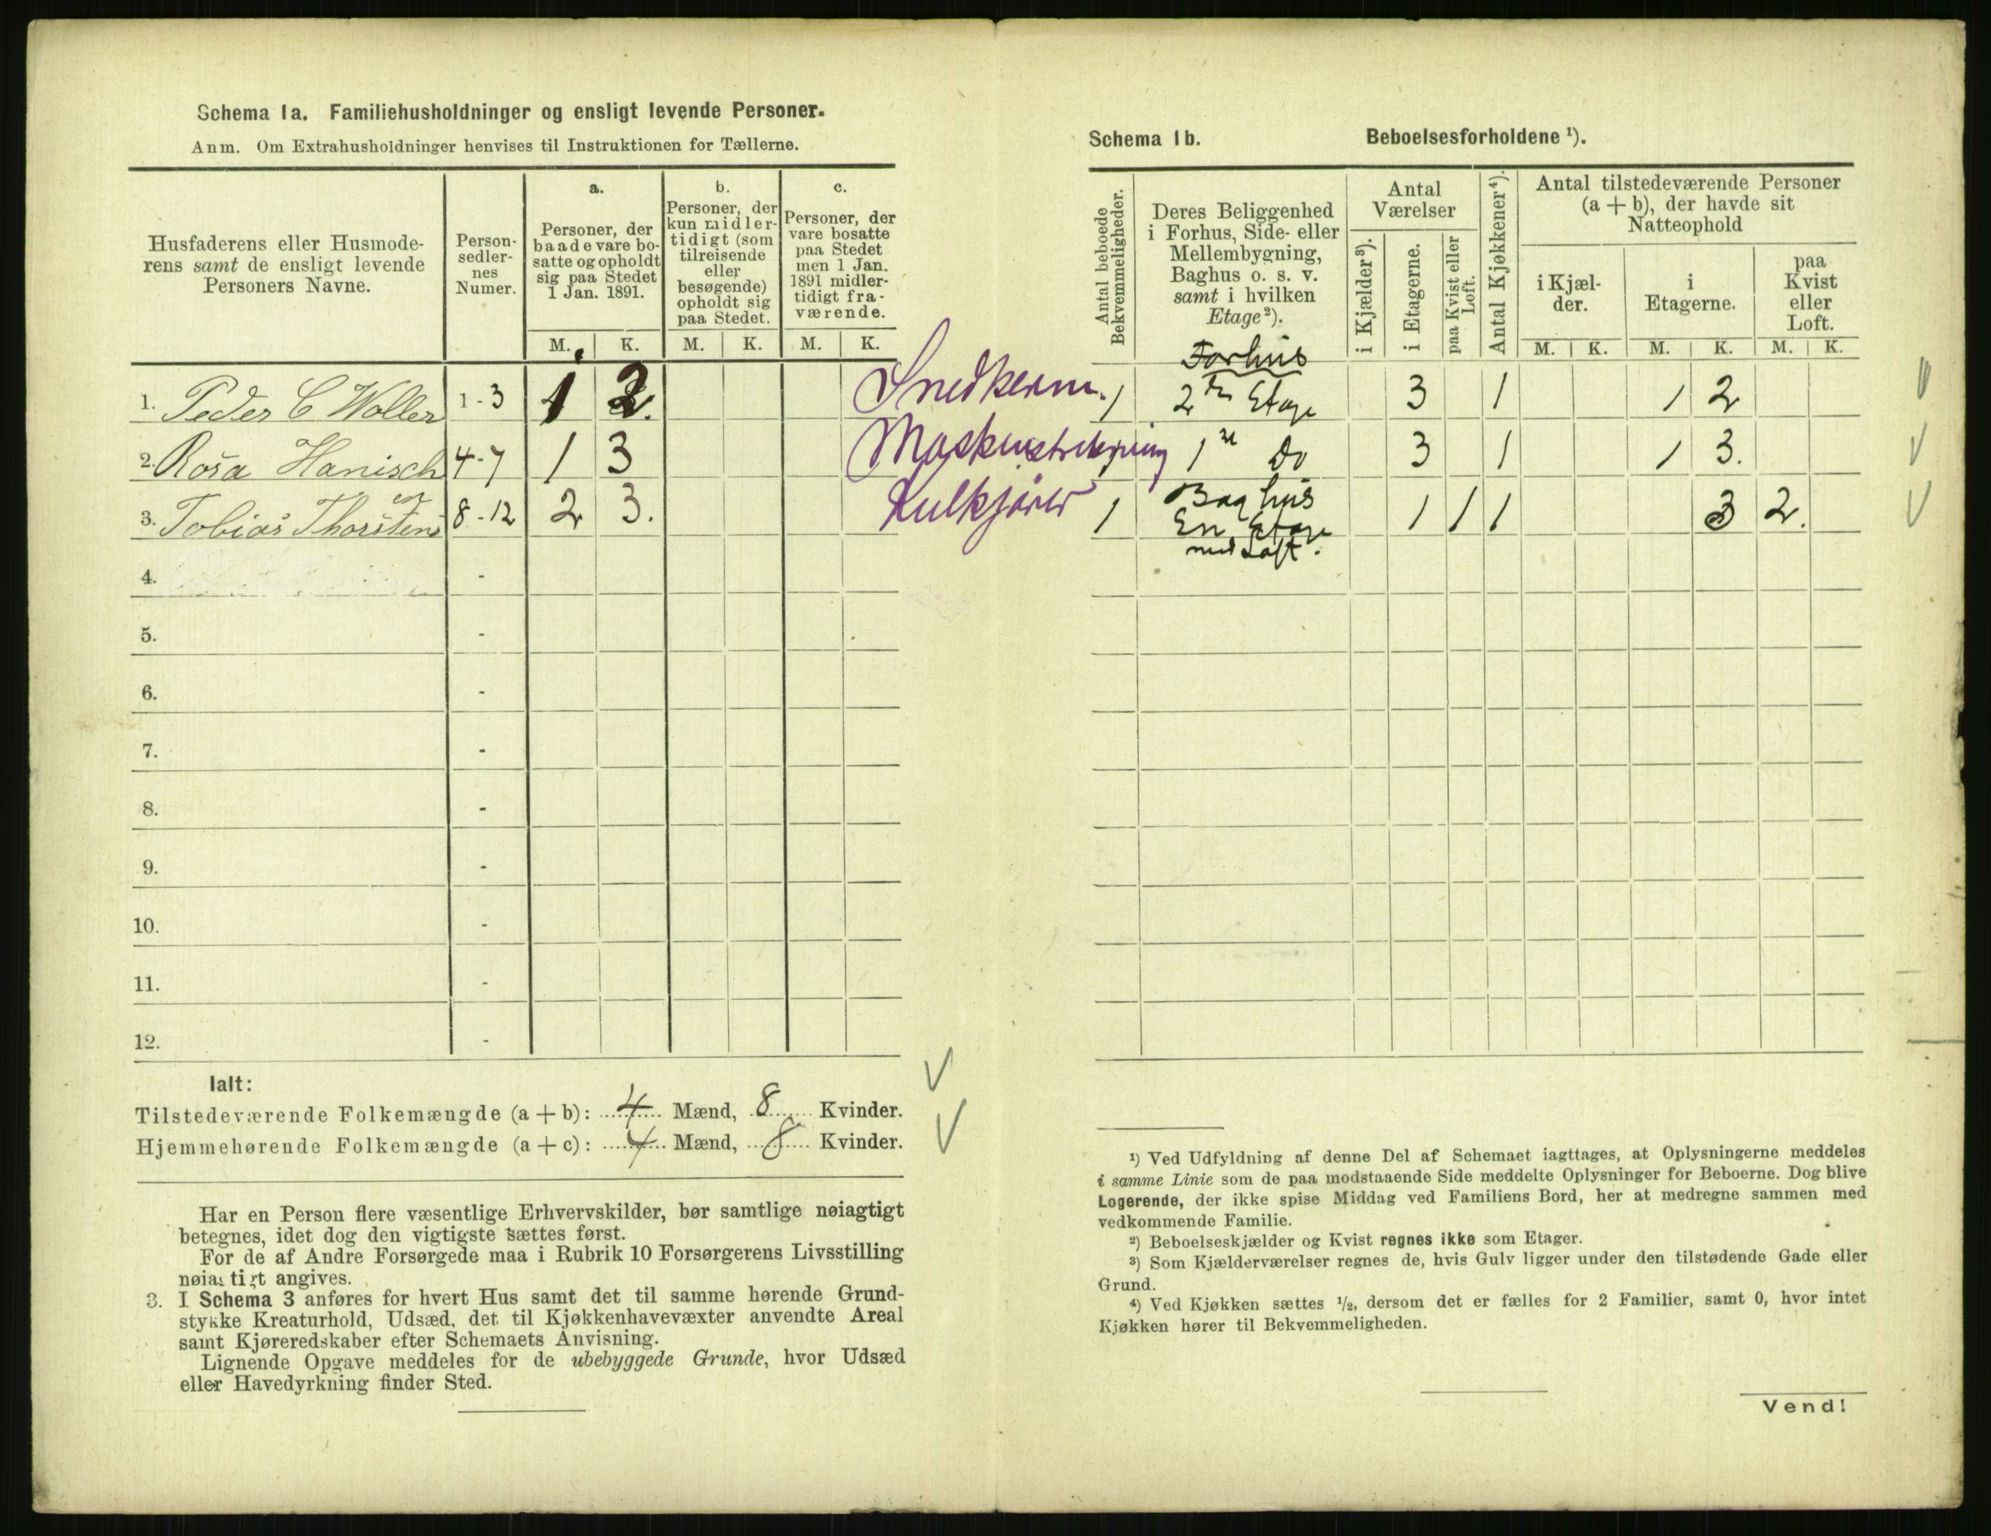 Schema 1a. Familiehusholdninger og ensligt levende Personer.
Anm. Om Extrahusholdninger henvises til Instruktionen for Tællerne.
Husfaderens eller Husmoderens samt de ensligt levende Personers Navne.
Personsedlernes Numer.
a. Personer, der baade vare bosatte og opholdt sig paa Stedet 1 Jan. 1891.
b. Personer, der kun midlertidigt (som tilreisende eller besøgende) opholdt sig paa Stedet.
c. Personer, der vare bosatte paa Stedet men 1 Jan. 1891 midlertidigt fraværende.
M. K. M. K. M. K.
1. Peder C Woller 1-3 1 2. Snedkerm.
2. Rosa Hanisch 4-7 1 3
3. Tobias Thorstensen 8-12 2 3. Kulkjører
4. -
5. -
6. -
7. -
8. -
9. -
10. -
11. -
12. -
Ialt:
Tilstedeværende Folkemængde (a + b): 4 Mænd, 8 Kvinder.
Hjemmehørende Folkemængde (a + c): 4 Mænd, 8 Kvinder.
Har en Person flere væsentlige Erhvervskilder, bør samtlige nøiagtigt
betegnes, idet dog den vigtigste sættes først.
For de af Andre Forsørgede maa i Rubrik 10 Forsørgerens Livsstilling
nøiagtigt angives.
3. I Schema 3 anføres for hvert Hus samt det til samme hørende Grund-
stykke Kreaturhold, Udsæd, det til Kjøkkenhavevæxter anvendte Areal
samt Kjøreredskaber efter Schemaets Anvisning.
Lignende Opgave meddeles for de ubebyggede Grunde, hvor Udsæd
eller Havedyrkning finder Sted.
Schema 1b. Beboelsesforholdene ¹).
Antal beboede Bekvemmeligheder.
Deres Beliggenhed i Forhus, Side- eller Mellembygning, Baghus o. s. v. samt i hvilken Etage²).
Antal Værelser
i Kjælder³).
i Etagerne.
paa Kvist eller Loft.
Antal Kjøkkener⁴).
Antal tilstedeværende Personer (a + b), der havde sit Natteophold
i Kjælder.
i Etagerne.
paa Kvist eller Loft.
M. K. M. K. M. K.
Forhus
1 2den Etage 3 1 1 2
1ste Do 3 1 1 3.
Baghus
1 En Etage 1 1 1 3 2.
med Loft.
¹) Ved Udfyldning af denne Del af Schemaet iagttages, at Oplysningerne meddeles
i samme Linie som de paa modstaaende Side meddelte Oplysninger for Beboerne. Dog blive
Logerende, der ikke spise Middag ved Familiens Bord, her at medregne sammen med
vedkommende Familie.
²) Beboelseskjælder og Kvist regnes ikke som Etager.
³) Som Kjælderværelser regnes de, hvis Gulv ligger under den tilstødende Gade eller
Grund.
⁴) Ved Kjøkken sættes ½, dersom det er fælles for 2 Familier, samt 0, hvor intet
Kjøkken hører til Bekvemmeligheden.
Vend!